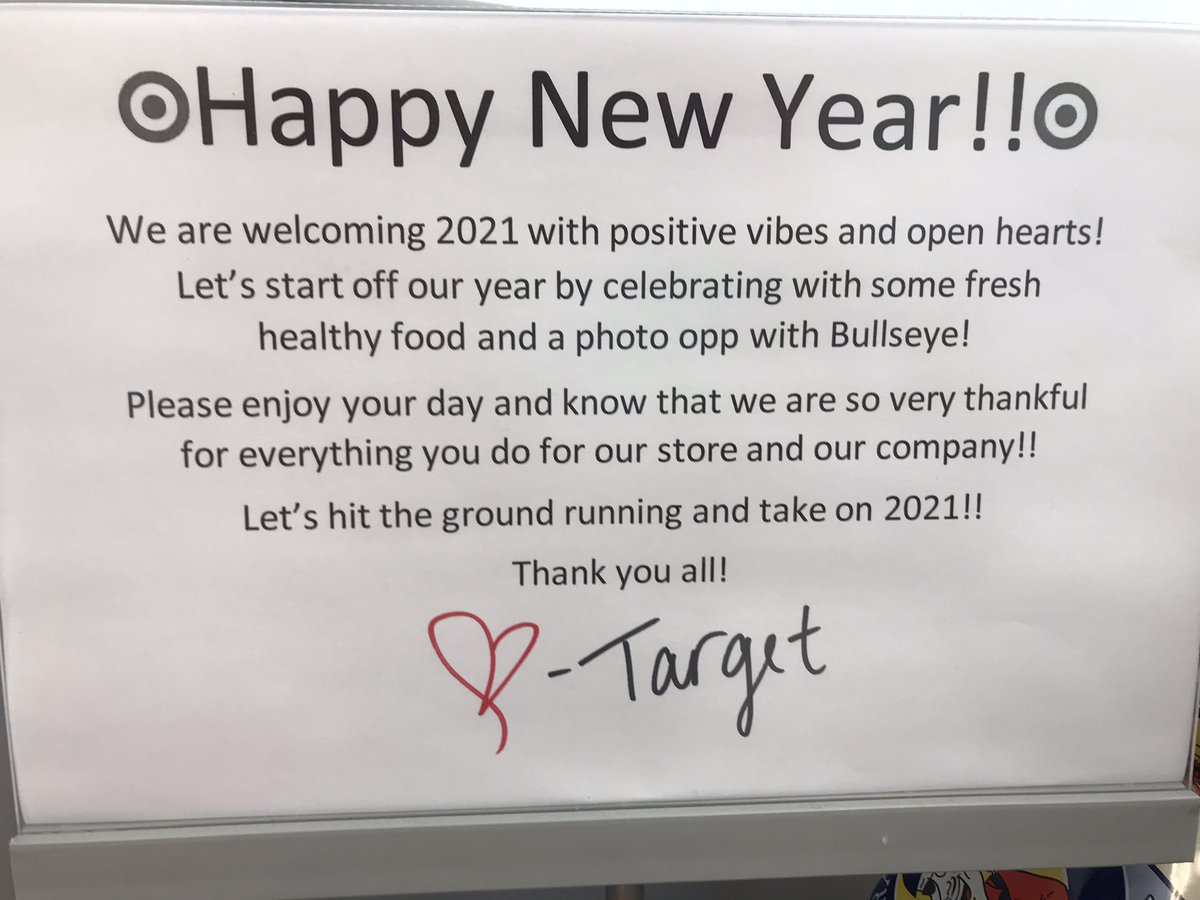 Happy New Year!!
We are welcoming 2021 with positive vibes and open hearts!
Let's start off our year by celebrating with some fresh
healthy food and a photo opp with Bullseye!
Please enjoy your day and know that we are so very thankful
for everything you do for our store and our company!!
Let's hit the ground running and take on 2021!!
Thank you all!
-Target